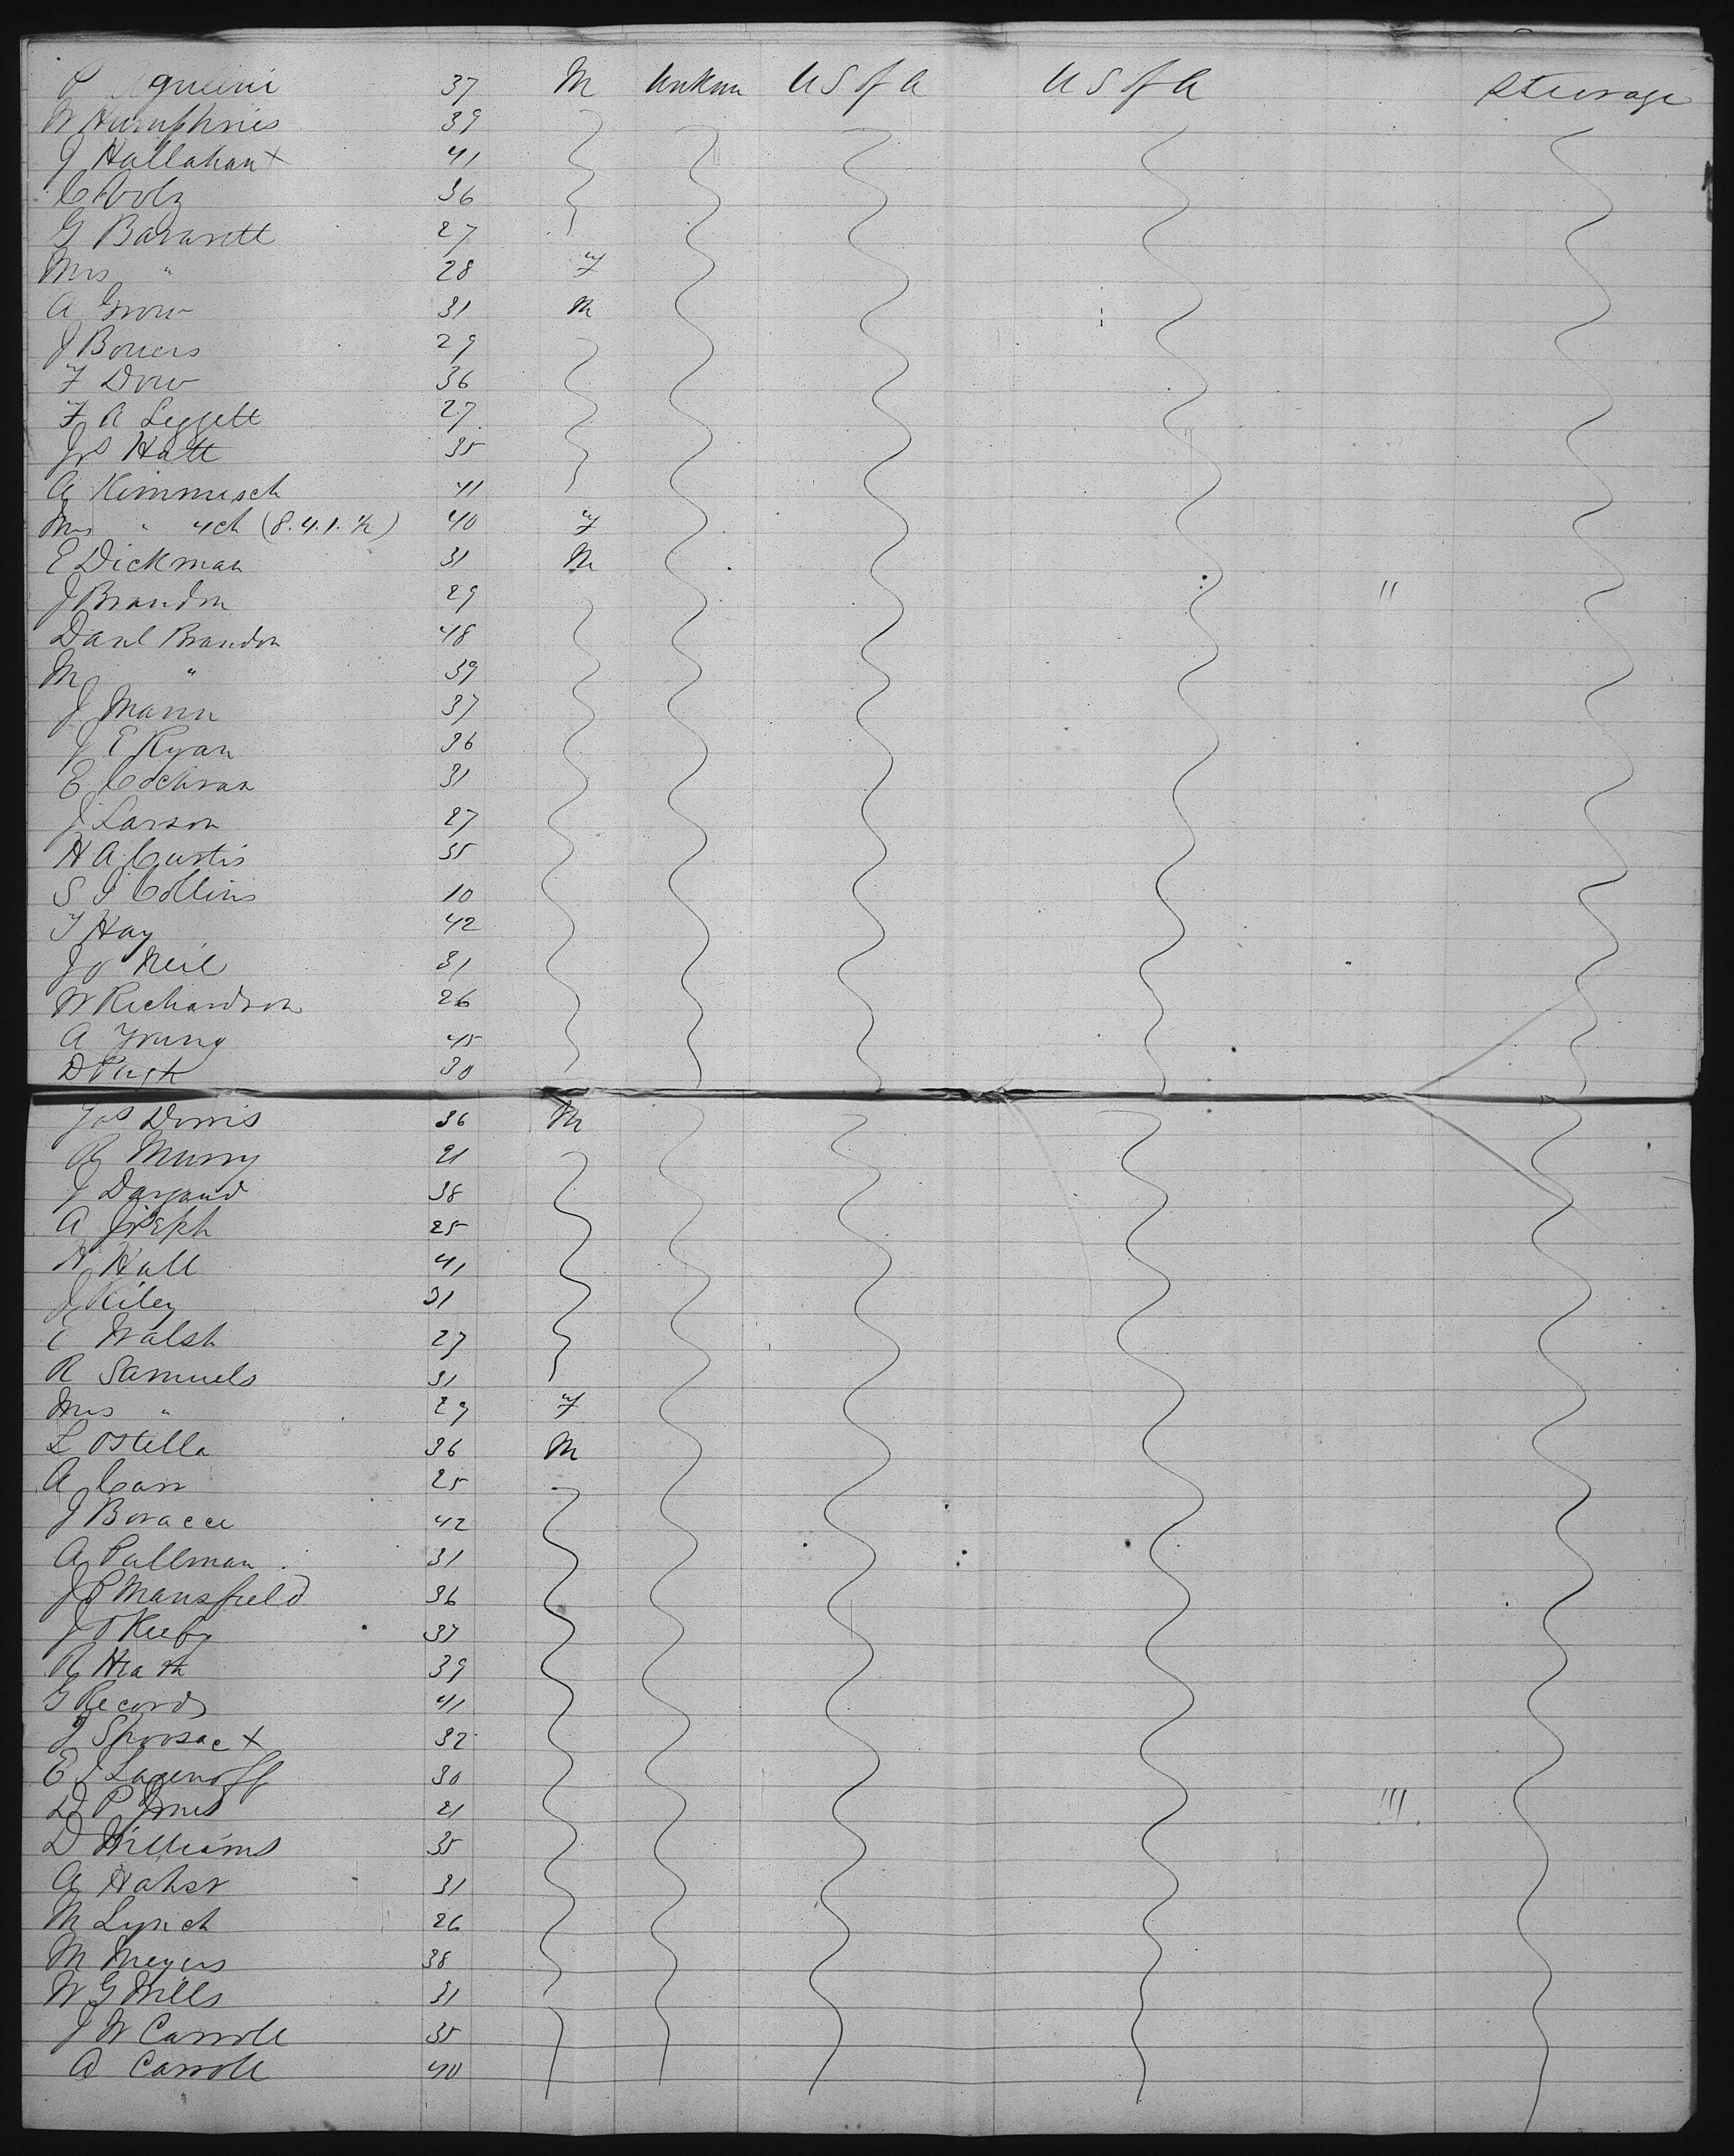 37 M Unknn U S of A U S of A Steerage
W Humphries 39
J Hallahan x 41
C Volz 36
G Bavarett 27
Mrs " 28 F
A Grow 31 M
J Bowers 29
F Dow 36
F A Leggett 27
Jos Hatt 35
A Kimmisch 41
Mrs " 4 ch (8. 4. 1. ½) 40 F
E Dickman 31 M
J Brandon 29 "
Danl Brandon 48
M " 39
J Mann 37
J E Ryan 36
E Cochran 31
J Larson 27
H A Curtis 35
S J Collins 10
T Hay 42
J O Neil 31
W Richardson 26
A Young 45
D Pugh 30
Jas Dorris 36 M
R Murry 21
J Dayaud 38
A Joseph 25
H Hall 41
J Riley 31
E Walsh 27
R Samuels 31
Mrs " 29 F
L Ostella 36 M
A Carr 25
J Boracce 42
A Pullman 31
J P Mansfield 36
J O Keefe 37
R Heath 39
G Records 41
J x 32
E J 30
D P Jones 21 "'
D Williams 35
A 31
M Lynch 26
M Meyers 38
W G Mills 31
J W Carroll 35
A Carroll 40